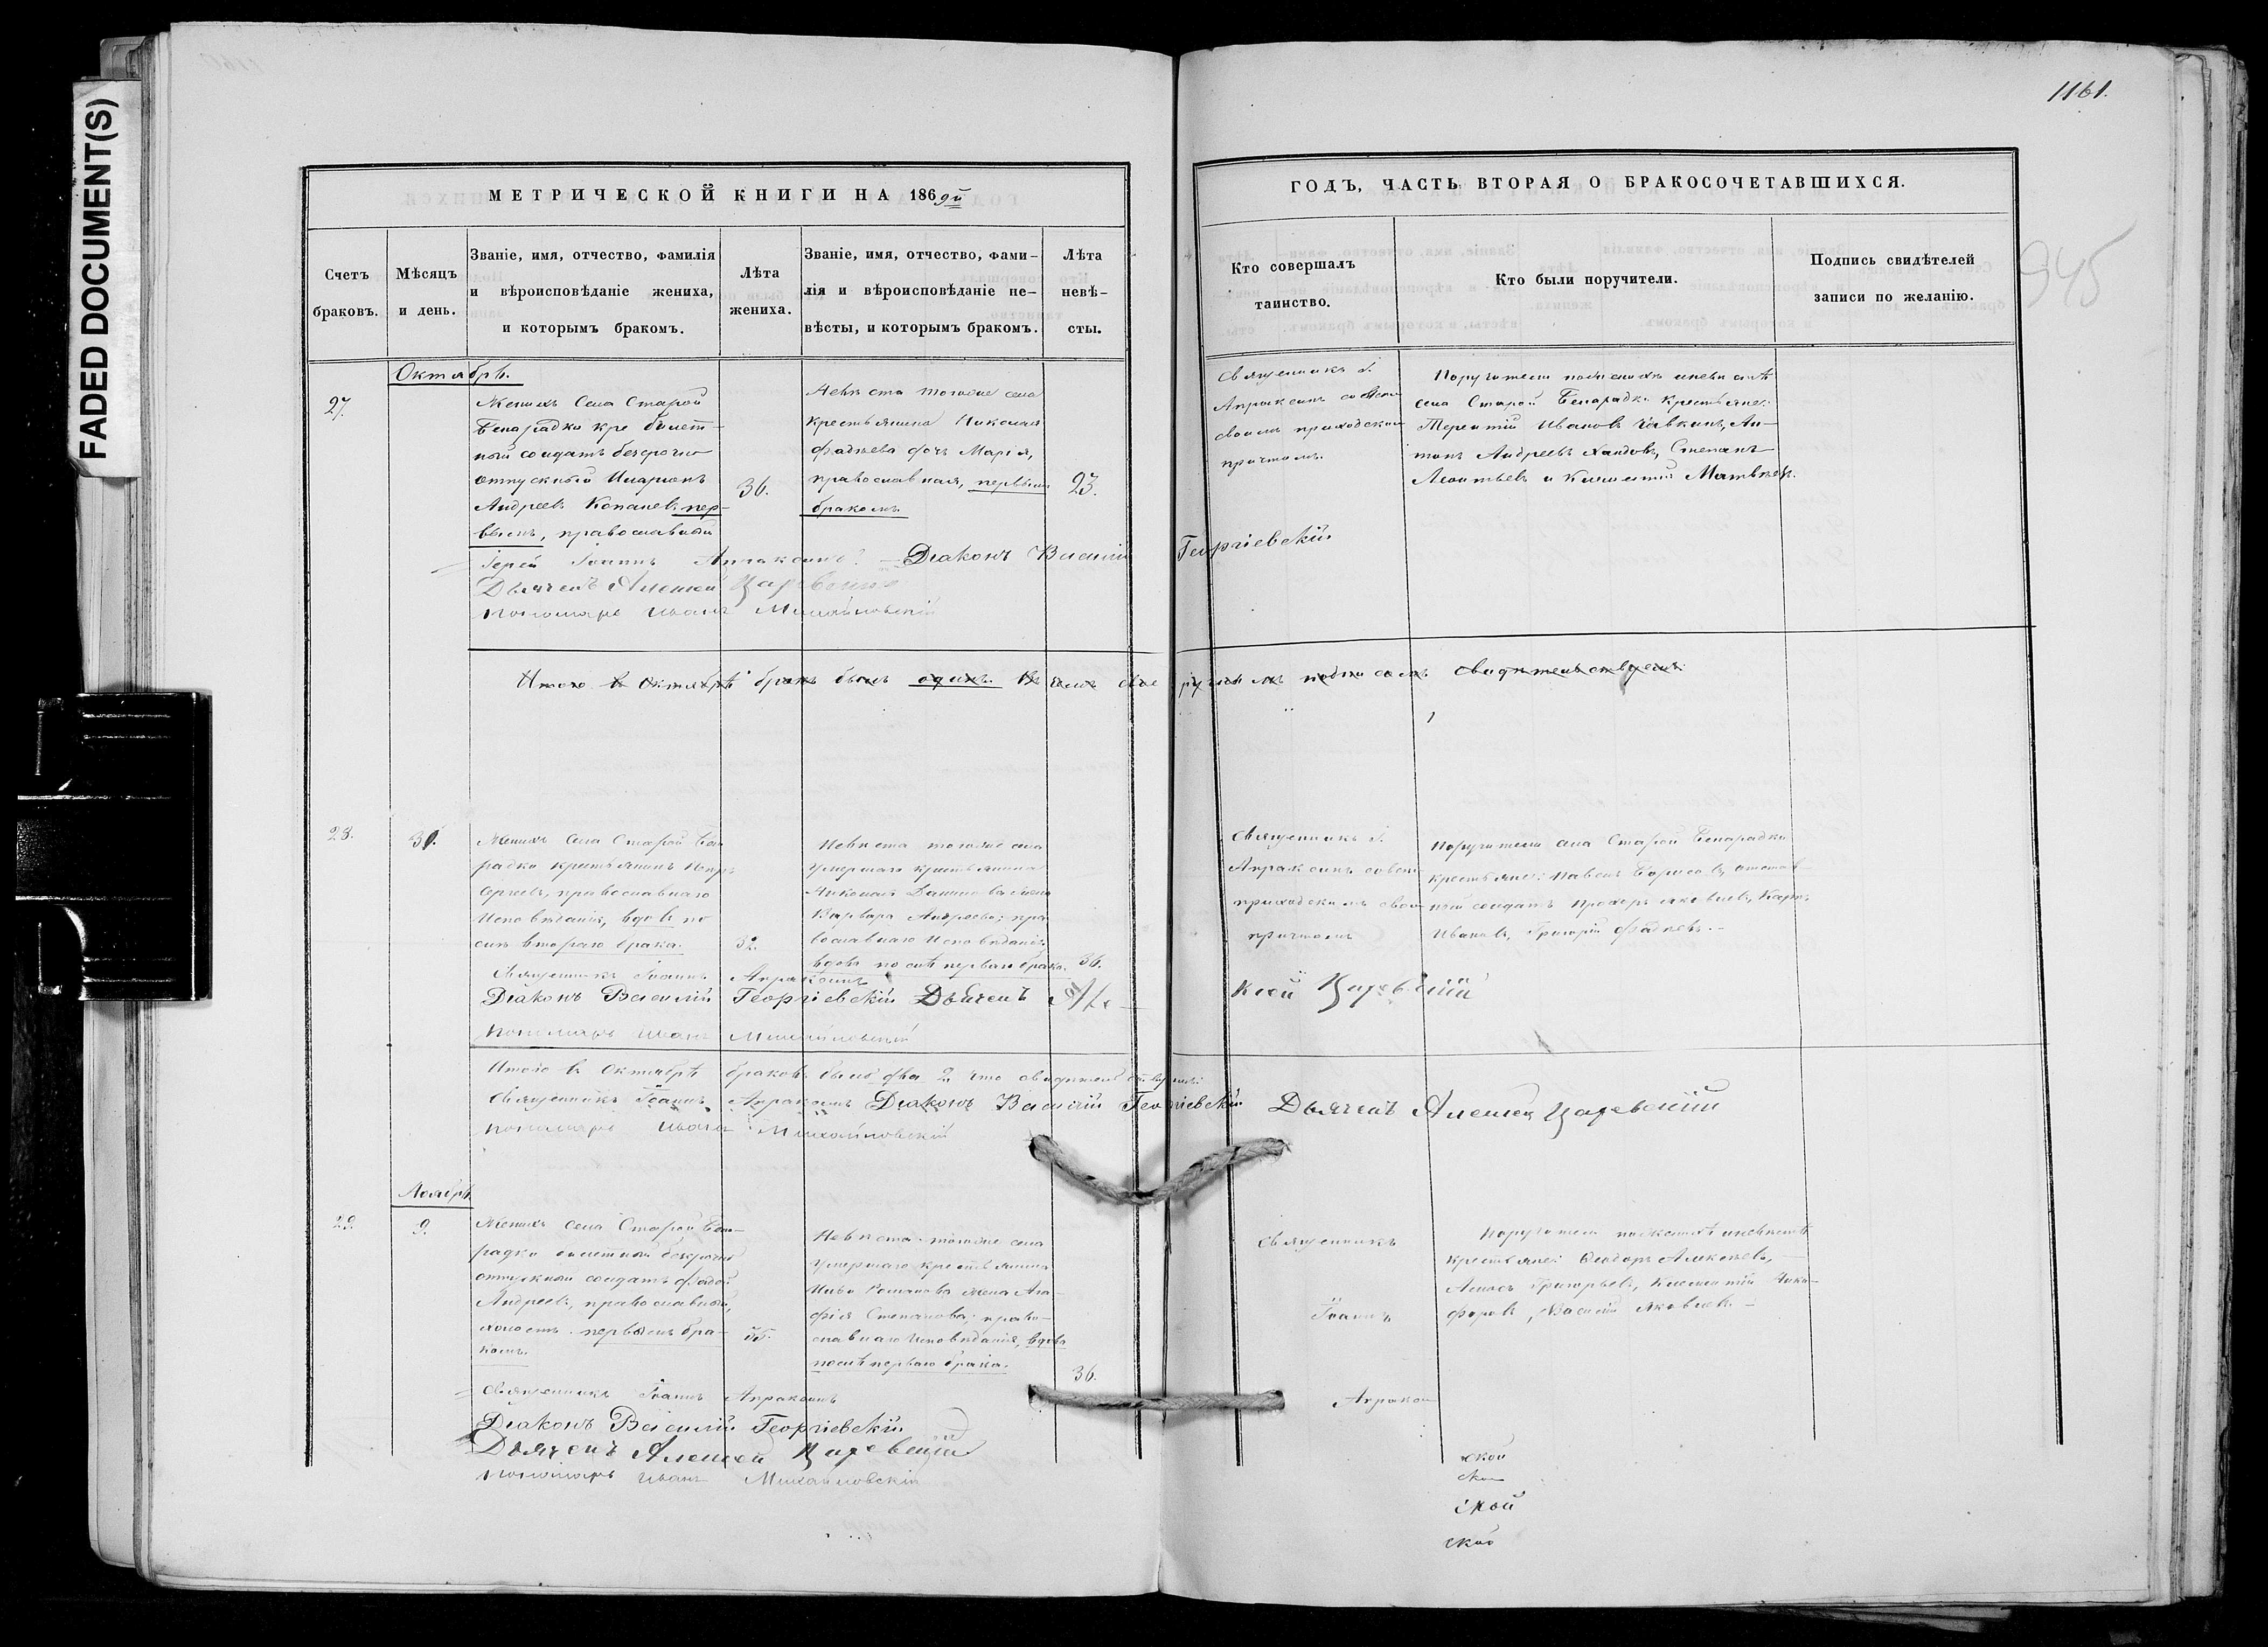 FADED DOCUMENT(S)
1161.
945
МЕТРИЧЕСКОЙ КНИГИ НА 1869й
ГОДЪ, ЧАСТЬ ВТОРАЯ О БРАКОСОЧЕТАВШИХСЯ.
Счетъ
браковъ.
Мѣсяцъ
и день.
Званіе, имя, отчество, фамилія
и вѣроисповѣданіе жениха,
и которымъ бракомъ.
Лѣта
жениха.
Званіе, имя, отчество, фами-
лія и вѣроисповѣданіе не-
вѣсты, и которымъ бракомъ.
Лѣта
невѣ-
сты.
Кто совершалъ
таинство.
Кто были поручители.
Подпись свидѣтелей
записи по желанію.
Октябрь.
27.
Женихъ села Старой
Бинарадки
солдатъ безсрочно
отпускной Иларионъ
Андреевъ пер-
вымъ, православный
36.
Невѣста тогоже села
крестьянина Николая
Фадѣева дочь Марія,
православная, первымъ
бракомъ.
23.
Священникъ І.
Апраксинъ со всѣмъ
своимъ приходскимъ
причтомъ.
Поручители
села Старой Бинарадки крестьяне:
Терентій Ивановъ Ан-
тонъ Андреевъ Степанъ
Леонтьевъ и Матвѣевъ.
Іерей Іоаннъ Апраксинъ. Діаконъ Василій Георгіевскій
Дьячекъ Алексей Царевскій
Пономарь Иванъ Михайловскій
Итого въ Октябрѣ бракъ былъ одинъ. подписомъ свидѣтельствуемъ
28.
Женихъ села Старой Бина-
радки крестьянинъ Петръ
Сергеевъ, православнаго
Исповѣданія, вдовъ по-
слѣ втораго брака.
32.
Невѣста тогоже села
умершаго крестьянина
Николая Данилова жена
Варвара Андреева; пра-
вославнаго Исповѣданія,
вдова послѣ перваго брака.
36.
Священникъ І.
Апраксинъ со всѣмъ
приходскимъ свои
причтомъ
Поручители села Старой Бинарадки
крестьяне: Павелъ Борисовъ, отстав-
ной солдатъ Прохоръ Яковлевъ, Карпъ
Ивановъ, Григорій Фадѣевъ.
Священникъ Іоаннъ Апраксинъ
Діаконъ Василій Георгіевскій Дьячекъ Але-
ксей Царевскій
Пономарь Иванъ Михайловскій
Итого въ Октябрѣ браковъ было два 2. что свидѣтельствуемъ:
Священникъ Іоаннъ Апраксинъ Діаконъ Василій Георгіевскій Дьячекъ Алексей Царевскій
Пономарь Иванъ Михайловскій
Ноябрь
29.
9.
Женихъ села Старой Бина-
радки билетный безсрочно
отпускной солдатъ
Андреевъ, православный,
холостъ. первымъ бра-
комъ.
Невѣста тогоже села
умершаго крестьянина
Романова жена Ага-
фія Степанова; право-
славнаго Исповѣданія, вдова
послѣ перваго брака.
36.
Священникъ
Іоаннъ
Апраксин
Поручители по женихѣ и невѣстѣ
крестьяне: Ѳедоръ Алексѣевъ,
Григорьевъ, Климентій Ники-
форовъ, Василій Яковлевъ.
Священникъ Іоаннъ Апраксинъ
Діаконъ Василій Георгіевскій
Дьячекъ Алексей Царевскій
Пономарь Иванъ Михайловскій
ской
ской